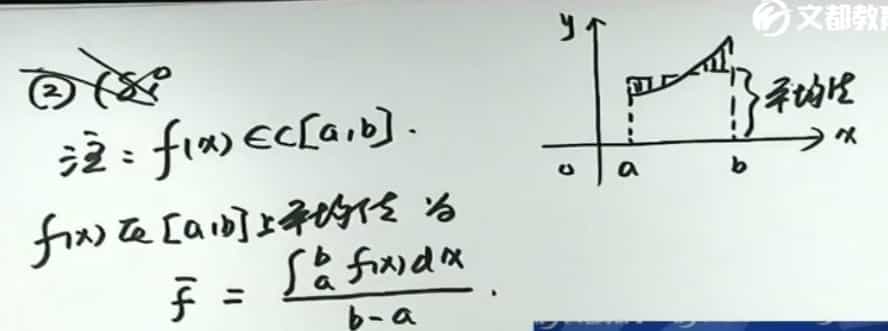 文都教育
② (
注: f(x)∈C[a,b].
f(x)在[a,b]上平均值为
f̄ = ∫ₐᵇ f(x)dx / b-a .
y
平均值
x
0 a b